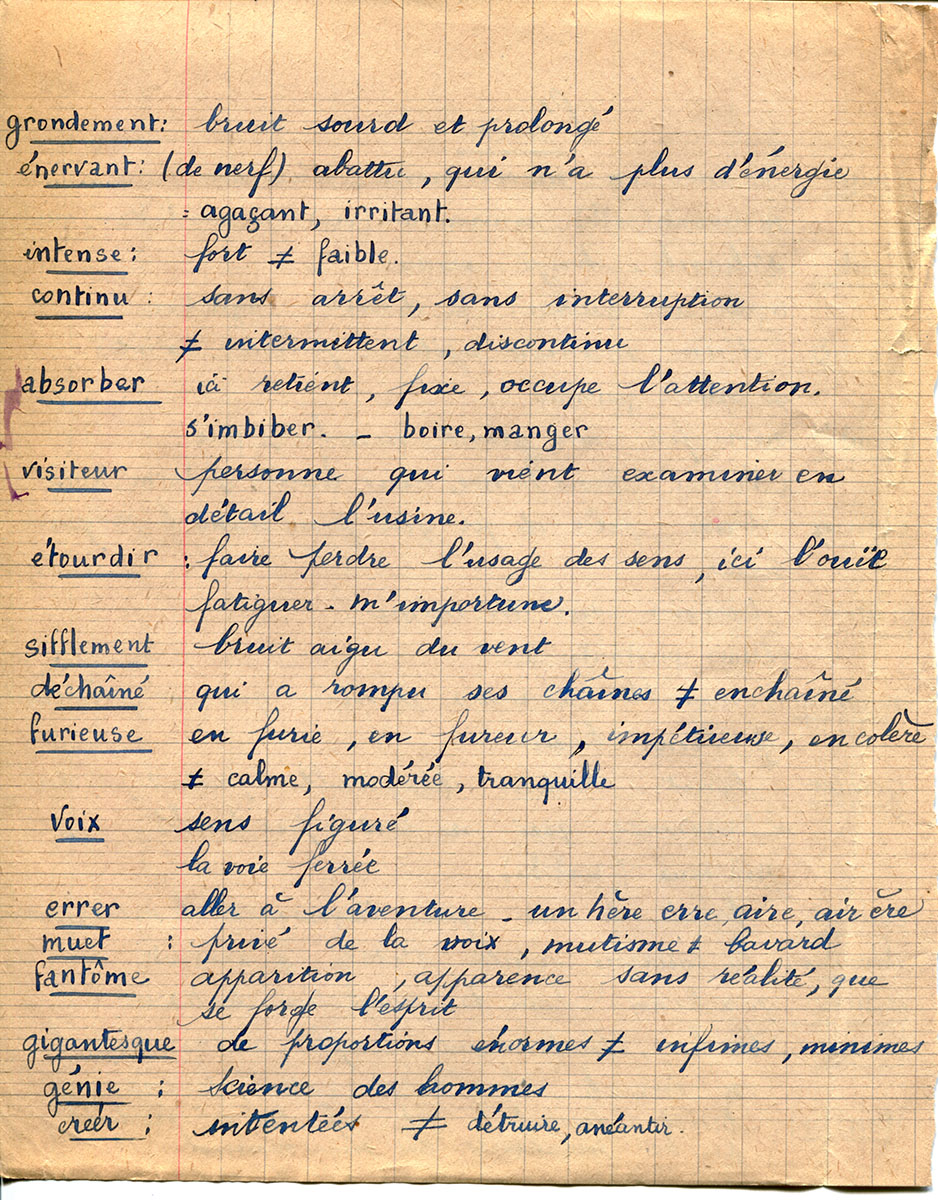 grondement: bruit sourd et prolongé
énervant: (de nerf) abattu, qui n'a plus d'énergie
= agaçant, irritant.
intense: fort ≠ faible.
continu: sans arrêt, sans interruption
≠ intermittent, discontinu
absorber ici retient, fixe, occupe l'attention.
s'imbiber. - boire, manger
visiteur personne qui vient examiner en
détail l'usine.
étourdir: faire perdre l'usage des sens, ici l'ouïe
fatiguer - m'importune.
sifflement bruit aigu du vent
déchaîné qui a rompu ses chaînes ≠ enchaîné
furieuse en furie, en fureur, impétueuse, en colère
≠ calme, modérée, tranquille
voix sens figuré
la voie ferrée
errer aller à l'aventure - un hère erre, aire, air ère
muet: privé de la voix, mutisme ≠ bavard
fantôme apparition, apparence sans réalité, que
se forge l'esprit
gigantesque de proportions énormes ≠ infimes, minimes
génie: science des hommes
créér: ≠ détruire, anéantir.